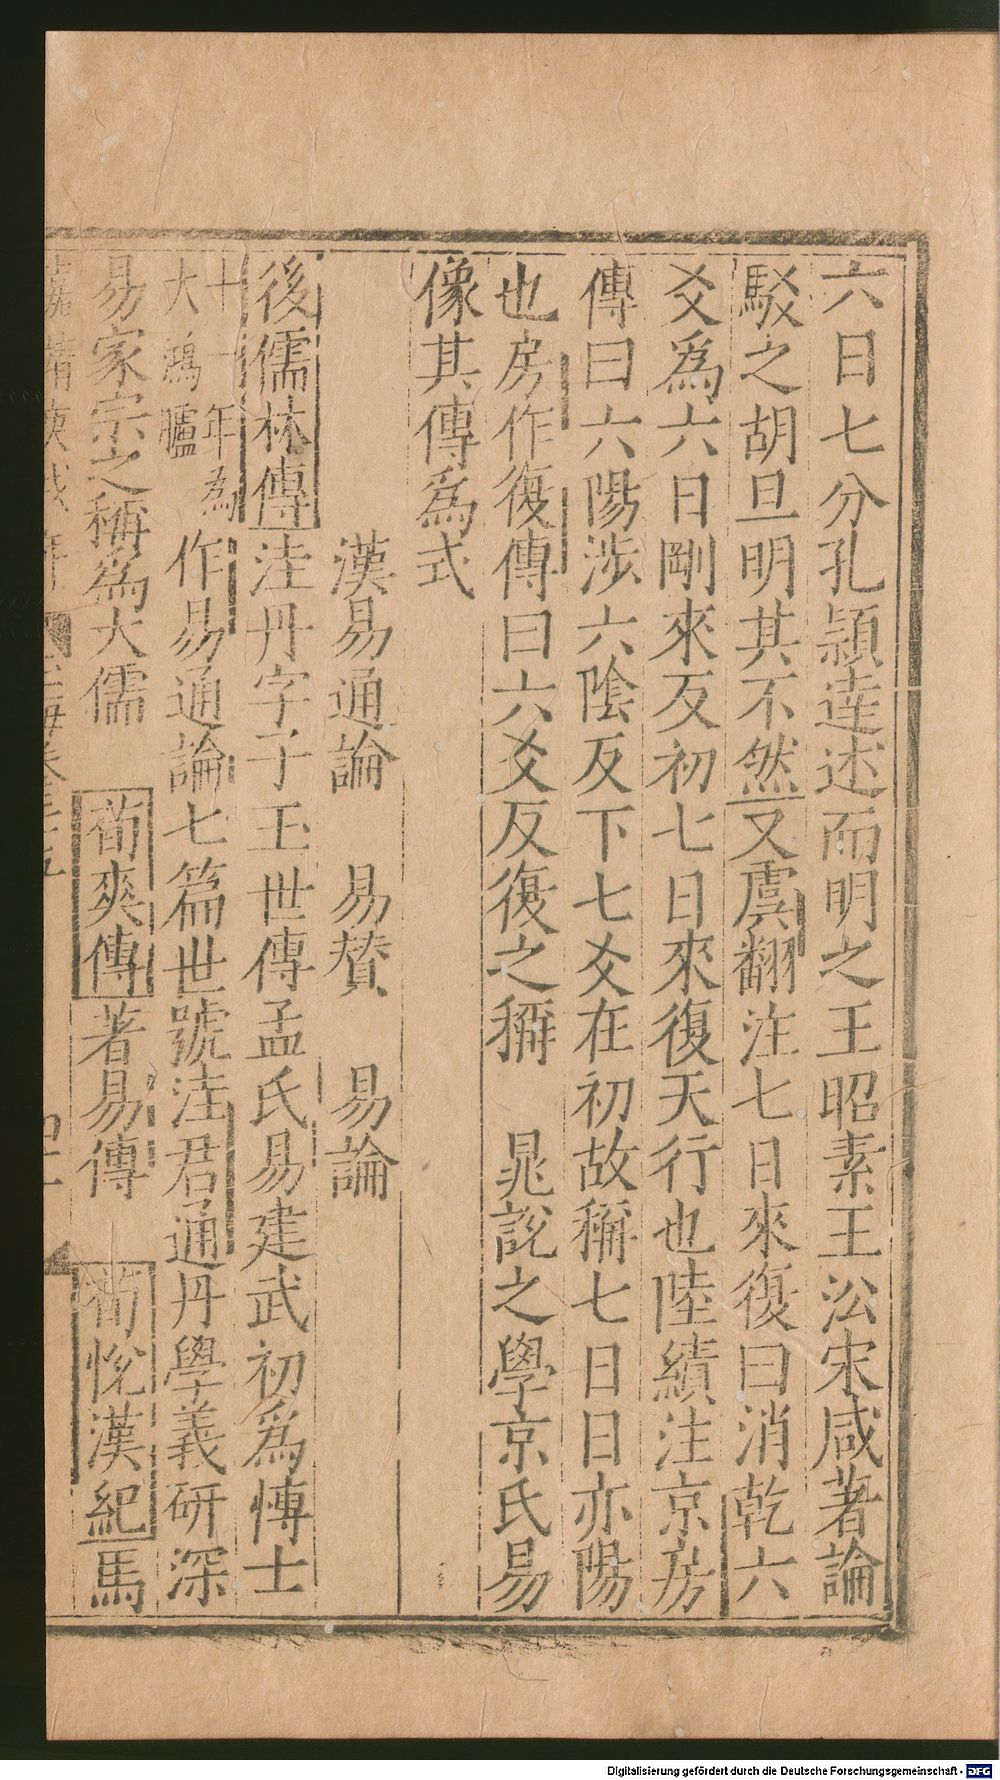 六日七分孔頴逹述而明之王昭素王㳂宋咸著論
駁之胡旦明其不然又虞翻注七日來復曰消乾六
爻爲六日剛來反初七日來復天行也陸績注京房
傳曰六陽涉六陰反下七爻在初故稱七日日亦陽
也房作復傳曰六爻反復之稱　晁說之學京氏易
像其傳爲式
漢易通論　易賛　易論
後儒林傳洼丹字子玉世傳孟氏易建武初爲愽士
十一年為
大鴻臚
作易通論七篇世號洼君通丹學義研深
易家宗之稱爲大儒　荀爽傳著易傳　荀恱漢紀馬
Digitalisierung gefördert durch die Deutsche Forschungsgemeinschaft - DFG